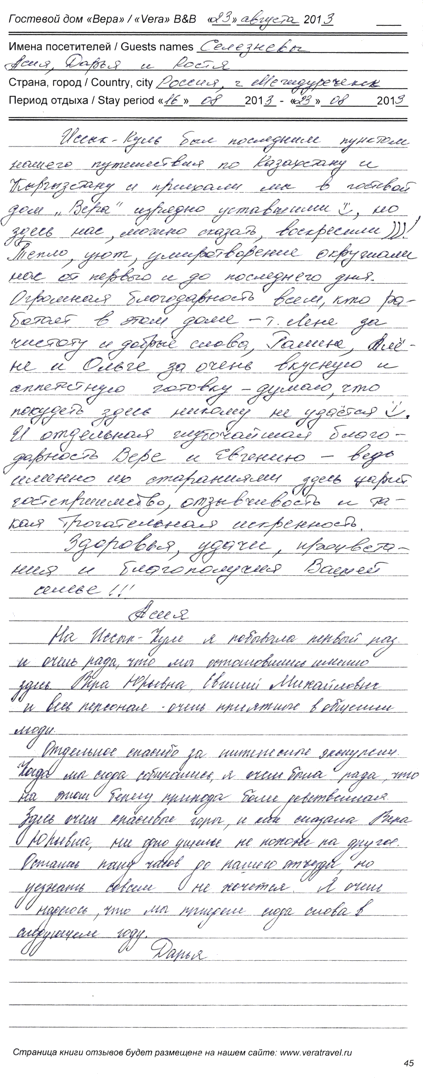 Гостевой дом «Вера» / «Vera» B&B «23» августа 2013
Имена посетителей / Guests names Селезневы
Асия, Дарья и Костя
Страна, город / Country, city Россия, г. Междуреченск
Период отдыха / Stay period «16» 08 2013 - «23» 08 2013
Иссык-Куль был последним пунктом
нашего путешествия по Казахстану и
Кыргызстану и приехали мы в гостевой
дом „Вера" изрядно уставшими, но
здесь нас, можно сказать, воскресили )))!
Тепло, уют, умиротворение окружали
нас от первого и до последнего дня.
Огромная благодарность всем, кто ра-
ботает в этом доме – т. Лене за
чистоту и добрые слова, Галине, Алё-
не и Ольге за очень вкусную и
аппетитную готовку – думаю, что
похудеть здесь никому не удаётся.
И отдельная глубочайшая благо-
дарность Вере и Евгению – ведь
именно их стараниями здесь царит
гостеприимство, отзывчивость и та-
кая трогательная искренность.
Здоровья, удачи, процвета-
ния и благополучия Вашей
семье !!
Асия
На Иссык-Куле я побывала первый раз
и очень рада, что мы остановились именно
здесь. Вера Юрьевна, Евгений Михайлович
и весь персонал - очень приятные в общении
люди.
Отдельное спасибо за интересные экскурсии.
Когда мы сюда собирались, я очень была рада, что
на этом берегу природа более естественная.
Здесь очень красивые горы, и как сказала Вера
Юрьевна, ни одно ущелье не похоже на другое.
Осталось пару часов до нашего отъезда, но
уезжать совсем не хочется. Я очень
надеюсь, что мы приедем сюда снова в
следующем году.
Дарья
Страница книги отзывов будет размещена на нашем сайте: www.veratravel.ru
45